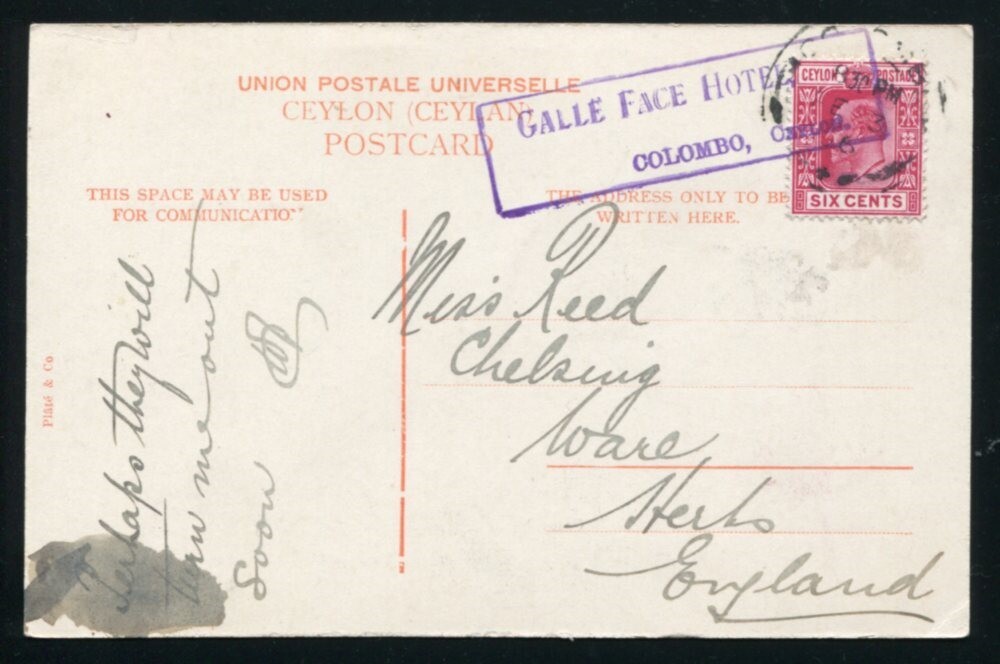 UNION POSTALE UNIVERSELLE
CEYLON (CEYLAN)
POSTCARD
GALLE FACE HOTEL
COLOMBO, CEYLON.
CEYLON POSTAGE
SIX CENTS
8 30 PM
THIS SPACE MAY BE USED
FOR COMMUNICATION
THE ADDRESS ONLY TO BE
WRITTEN HERE.
Perhaps they will
turn me out
soon
Miss Reed
Chelsing
Ware
Herts
England
Plâté & Co